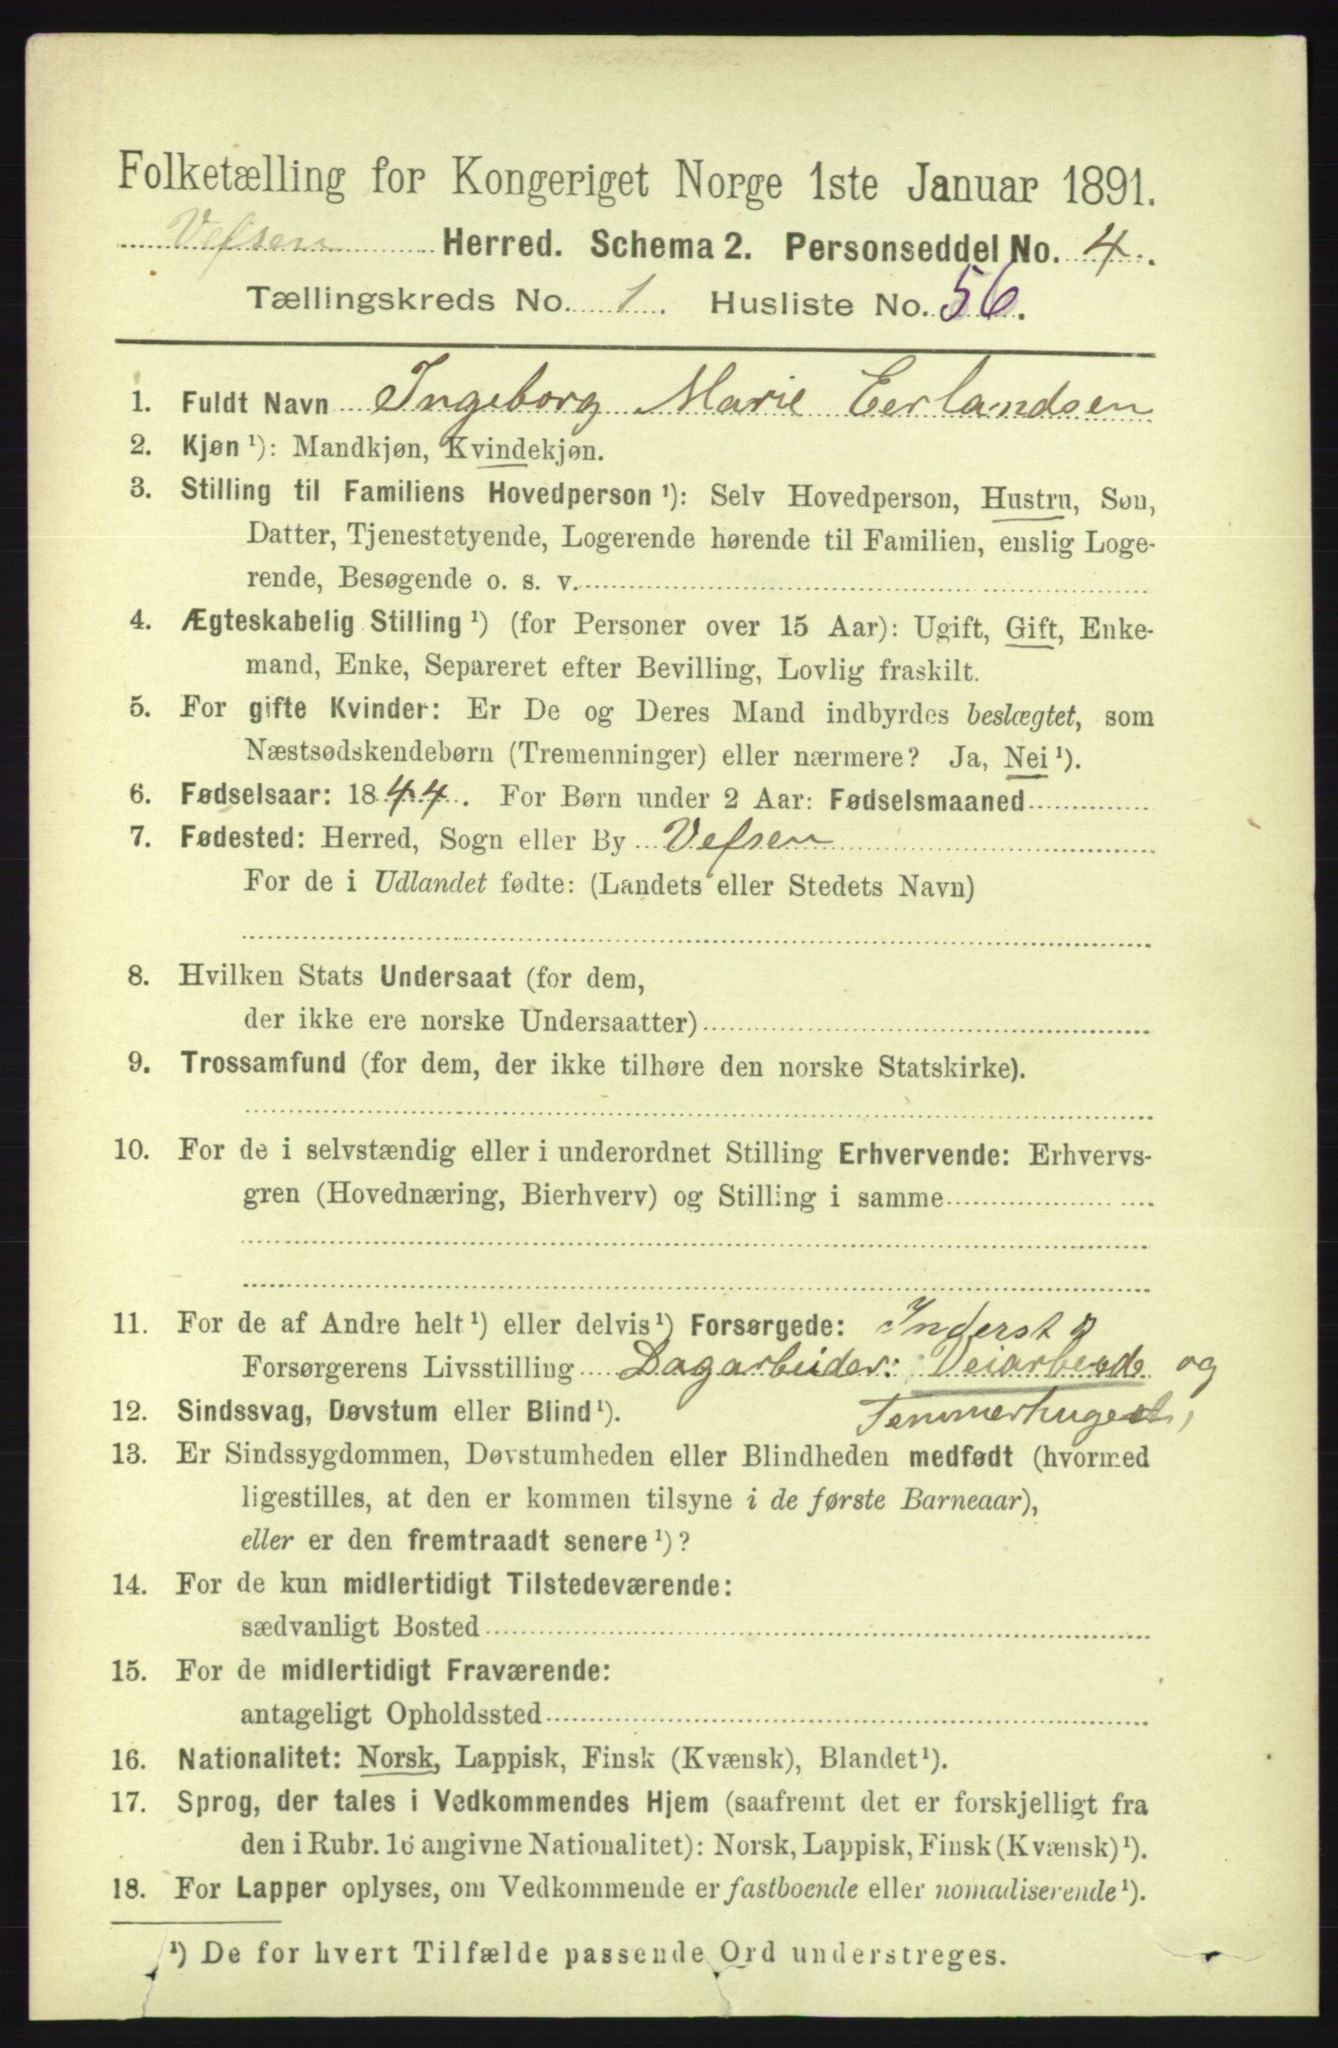 Folketælling for Kongeriget Norge 1ste Januar 1891.
Vefsen Herred. Schema 2. Personseddel No. 4.
Tællingskreds No. 1. Husliste No. 56.
1. Fuldt Navn Ingeborg Marie Eerlandsen
2. Kjøn ¹): Mandkjøn, Kvindekjøn.
3. Stilling til Familiens Hovedperson ¹): Selv Hovedperson, Hustru, Søn,
Datter, Tjenestetyende, Logerende hørende til Familien, enslig Loge-
rende, Besøgende o. s. v.
4. Ægteskabelig Stilling ¹) (for Personer over 15 Aar): Ugift, Gift, Enke-
mand, Enke, Separeret efter Bevilling, Lovlig fraskilt.
5. For gifte Kvinder: Er De og Deres Mand indbyrdes beslægtet, som
Næstsødskendebørn (Tremenninger) eller nærmere? Ja, Nei ¹).
6. Fødselsaar: 1844. For Børn under 2 Aar: Fødselsmaaned
7. Fødested: Herred, Sogn eller By Vefsen
For de i Udlandet fødte: (Landets eller Stedets Navn)
8. Hvilken Stats Undersaat (for dem,
der ikke ere norske Undersaatter)
9. Trossamfund (for dem, der ikke tilhøre den norske Statskirke).
10. For de i selvstændig eller i underordnet Stilling Erhvervende: Erhvervs-
gren (Hovednæring, Bierhverv) og Stilling i samme
11. For de af Andre helt ¹) eller delvis ¹) Forsørgede: Inderst
Forsørgerens Livsstilling Dagarbeider: Veiarbeide og
12. Sindssvag, Døvstum eller Blind ¹).
13. Er Sindssygdommen, Døvstumheden eller Blindheden medfødt (hvormed
ligestilles, at den er kommen tilsyne i de første Barneaar),
eller er den fremtraadt senere ¹)?
14. For de kun midlertidigt Tilstedeværende:
sædvanligt Bosted
15. For de midlertidigt Fraværende:
antageligt Opholdssted
16. Nationalitet: Norsk, Lappisk, Finsk (Kvænsk), Blandet ¹).
17. Sprog, der tales i Vedkommendes Hjem (saafremt det er forskjelligt fra
den i Rubr. 16 angivne Nationalitet): Norsk, Lappisk, Finsk (Kvænsk) ¹).
18. For Lapper oplyses, om Vedkommende er fastboende eller nomadiserende ¹).
¹) De for hvert Tilfælde passende Ord understreges.